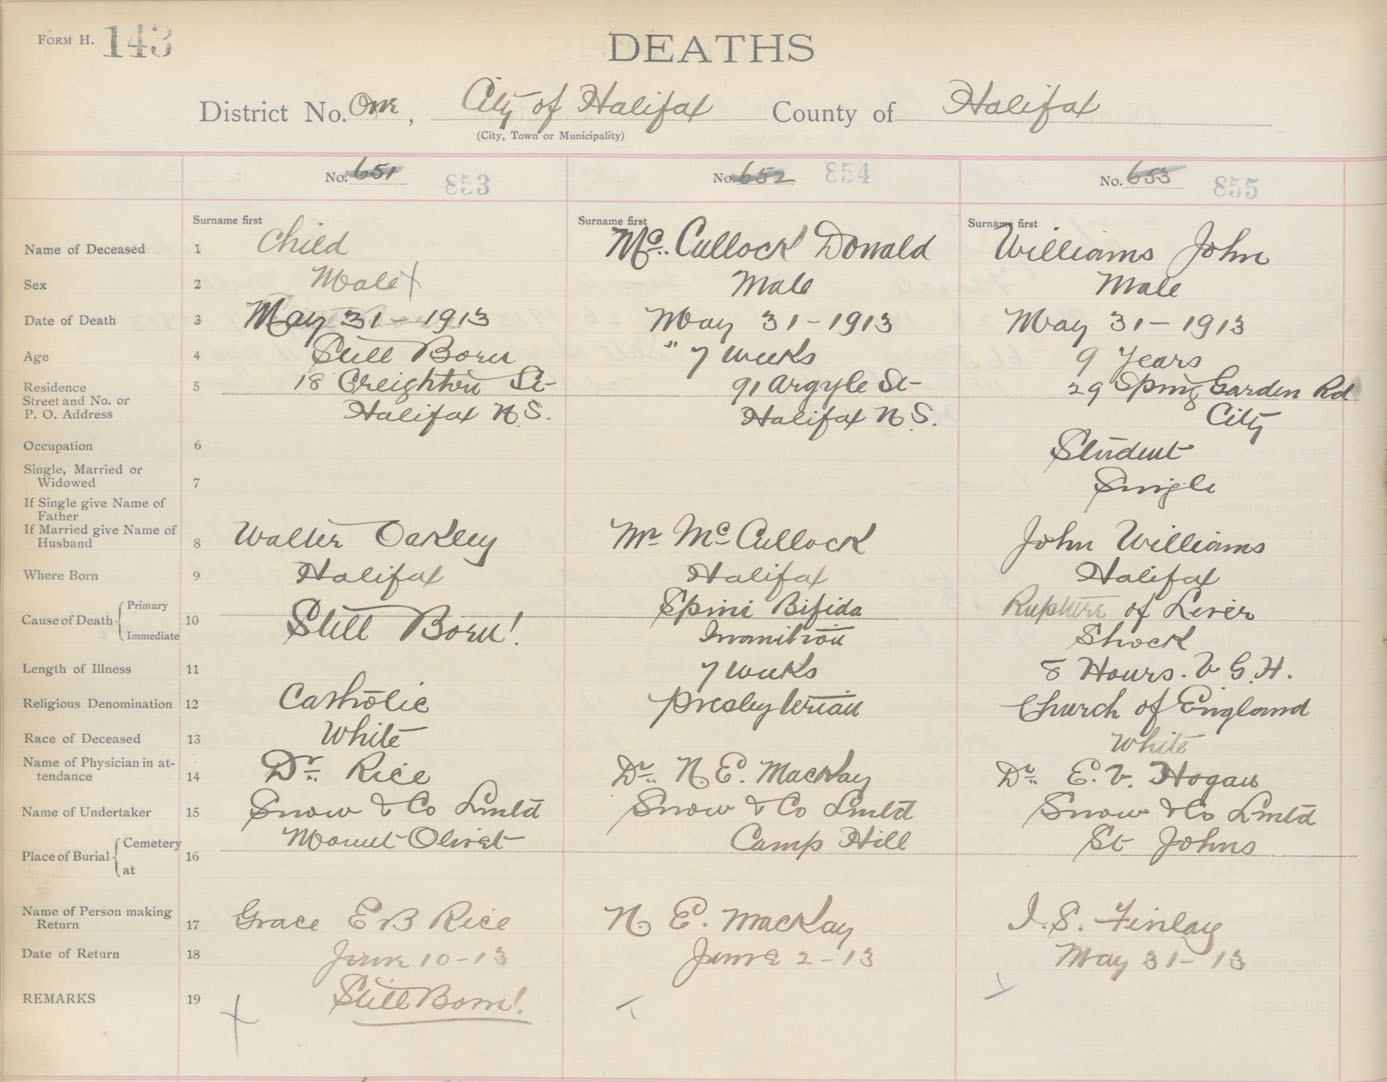 FORM H. 143
DEATHS
District No. One, City of Halifax County of Halifax
(City, Town or Municipality)
No. 651 853
No. 652 854
No. 653 855
Surname first
Surname first
Surname first
Name of Deceased 1 Child Mc. Cullock Donald Williams John
Sex 2 Male X Male Male
Date of Death 3 May 31 - 1913 May 31 - 1913 May 31 - 1913
Age 4 Still Born " 7 Weeks 9 Years
Residence 5 18 Creighton St- 91 Argyle St- 29 Spring Garden Rd
Street and No. or
P. O. Address Halifax N.S. Halifax N.S. City
Occupation 6 Student
Single, Married or
Widowed 7 Single
If Single give Name of
Father
If Married give Name of
Husband 8 Walter Oakley Mr McCullock John Williams
Where Born 9 Halifax Halifax Halifax
Cause of Death { Primary 10 Still Born! Spini Bifida Rupture of Liver
Immediate Inanition Shock
Length of Illness 11 7 Weeks 8 Hours. V G.H.
Religious Denomination 12 Catholic Presbyterian Church of England
Race of Deceased 13 White White
Name of Physician in at-
tendance 14 Dr. Rice Dr. N. E. MacKay Dr. E. V. Hogan
Name of Undertaker 15 Snow & Co Lmtd Snow & Co Lmtd Snow & Co Lmtd
Place of Burial { Cemetery 16 Mount Olivet Camp Hill St Johns
at
Name of Person making
Return 17 Grace E B Rice N. E. MacKay I. S. Finlay
Date of Return 18 June 10-13 June 2-13 May 31-13
REMARKS 19 Still Born!